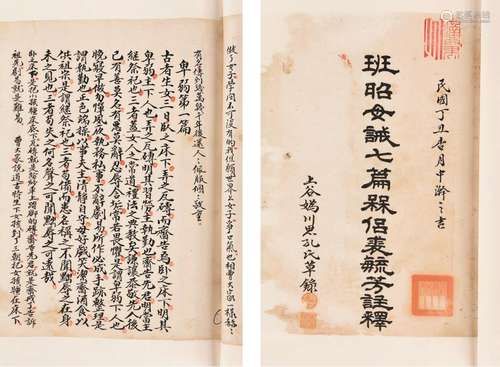 民國丁丑杏月中澣之吉
班昭女誡七篇槑侶裴毓芳註釋
上谷媯川思孔氏草錄
有名傳到幾萬幾千年後還人人佩服個個敬重
卑弱第一篇
古者生女三日臥之床下弄之瓦磚而齋告焉臥之床下明其
卑弱主下人也弄之瓦磚明其習勞主執勤也齋告先君明當主
繼祭祀也三者蓋女人之常道禮法之典教矣謙讓恭敬先人後
己有善莫名有惡莫辭忍辱含垢常若畏懼是謂卑弱下人也
晚寢早作勿憚夙夜執務私事不辭劇易所作必成手跡整理是
謂執勤也正色端操以事夫主清靜自守無好戲笑潔齊酒食以
供祖宗是謂繼祭祀也三者苟備而患名稱之不聞黜辱之在身
未之見也三者苟失之何名稱之可聞黜辱之可遠哉
曹大家說道古時生下女孩到了三朝把女孩睡在床下